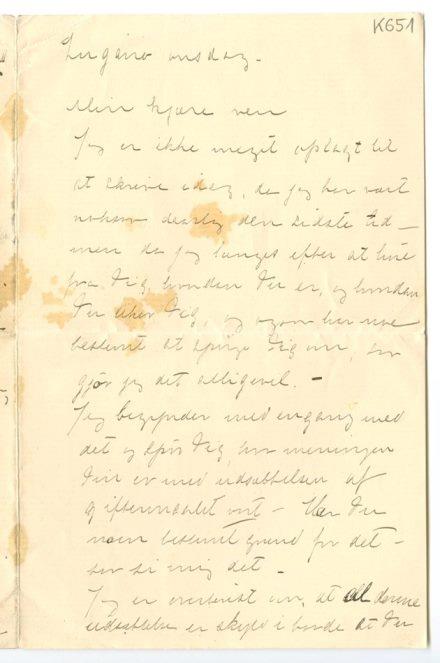 K651
Lugano onsdag.
Min kjære ven
Jeg er ikke meget oplagt til
at skrive idag, da jeg har vært
noksaa daarlig den sidste tid –
men da jeg længes efter at høre
fra Dig, hvordan Du er, og hvordan
Du har Dig, og ogsaa har noe
bestemt at spørge Dig om, saa
gjør jeg det alligevel. –
Jeg begynder med engang med
det og spør Dig hvor meningen
Din er med udsættelsen af
giftermaalet vort – Har Du
noen bestemt grund for det –
saa si mig det –
Jeg er overbevist om, at all denne
udsættelse er skyld i baade at Du